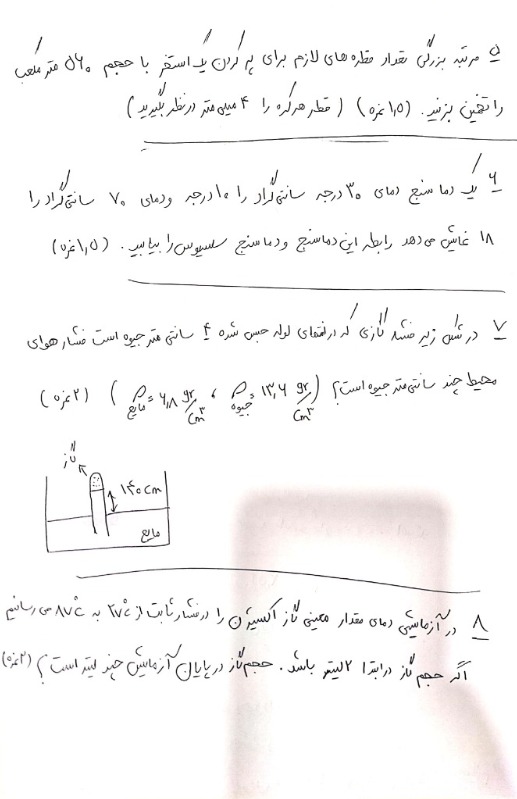 ۵ مرتبه بزرگی تعداد قطره های لازم برای پر کردن یک استخر با حجم ۵۶۰ متر مکعب
را تخمین بزنید. (۱٫۵ نمره) (قطر هر کره را ۴ میلی متر در نظر بگیرید)
۶ یک دما سنج دمای ۳۰ درجه سانتی گراد را ۱۰ درجه و دمای ۷۰ سانتی گراد را
۱۸ نمایش می دهد رابطه این دماسنج و دماسنج سلسیوس را بیابید. (۱٫۵ نمره)
۷ در شکل زیر فشار گازی که در انتهای لوله حبس شده ۴ سانتی متر جیوه است فشار هوای
محیط چند سانتی متر جیوه است؟ (ρجیوه = ۱۳٫۶ gr/cm³ ، ρمایع = ۶٫۸ gr/cm³) (۲ نمره)
گاز
۱۴۰ cm
مایع
۸ در آزمایشی دمای مقدار معینی گاز اکسیژن را در فشار ثابت از ۲۷°C به ۸۷°C می رسانیم
اگر حجم گاز در ابتدا ۲ لیتر باشد. حجم گاز در پایان آزمایش چند لیتر است؟ (۲ نمره)